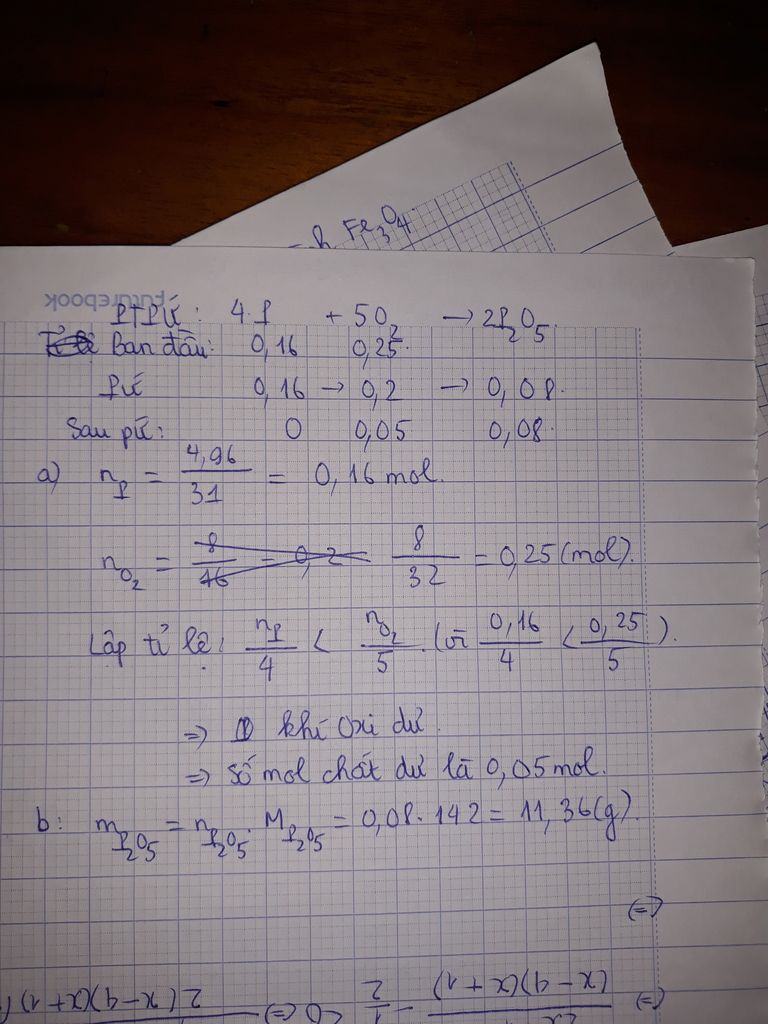 n Fe₃O₄
Futurebook
PTPỨ: 4P + 5O₂ → 2P₂O₅.
Ban đầu: 0,16 0,25.
PỨ 0,16 → 0,2 → 0,08.
Sau pứ: 0 0,05 0,08.
a) n_P = 4,96/31 = 0,16 mol.
n_O₂ = 8/16 = 0,2 8/32 = 0,25 (mol).
Lập tỉ lệ: n_P/4 < n_O₂/5. (vì 0,16/4 < 0,25/5).
=> khí oxi dư.
=> Số mol chất dư là 0,05 mol.
b: m_P₂O₅ = n_P₂O₅. M_P₂O₅ = 0,08. 142 = 11,36(g).
(=)
(=) 2x/(x-4)(x+1) - 1/2 < 0 (=) /2(x-4)(x+1)